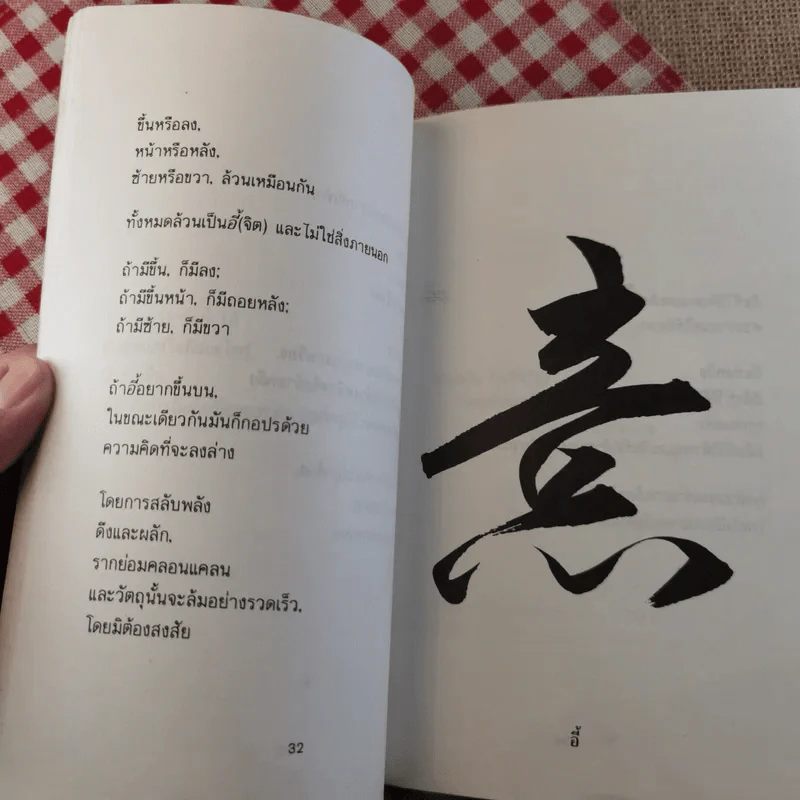 ขึ้นหรือลง,
หน้าหรือหลัง,
ซ้ายหรือขวา, ล้วนเหมือนกัน
ทั้งหมดล้วนเป็นอี้(จิต) และไม่ใช่สิ่งภายนอก
ถ้ามีขึ้น, ก็มีลง;
ถ้ามีขึ้นหน้า, ก็มีถอยหลัง;
ถ้ามีซ้าย, ก็มีขวา
ถ้าอี้อยากขึ้นบน,
ในขณะเดียวกันมันก็กอปรด้วย
ความคิดที่จะลงล่าง
โดยการสลับพลัง
ดึงและผลัก,
รากย่อมคลอนแคลน
และวัตถุนั้นจะล้มอย่างรวดเร็ว,
โดยมิต้องสงสัย
32
意
อี้